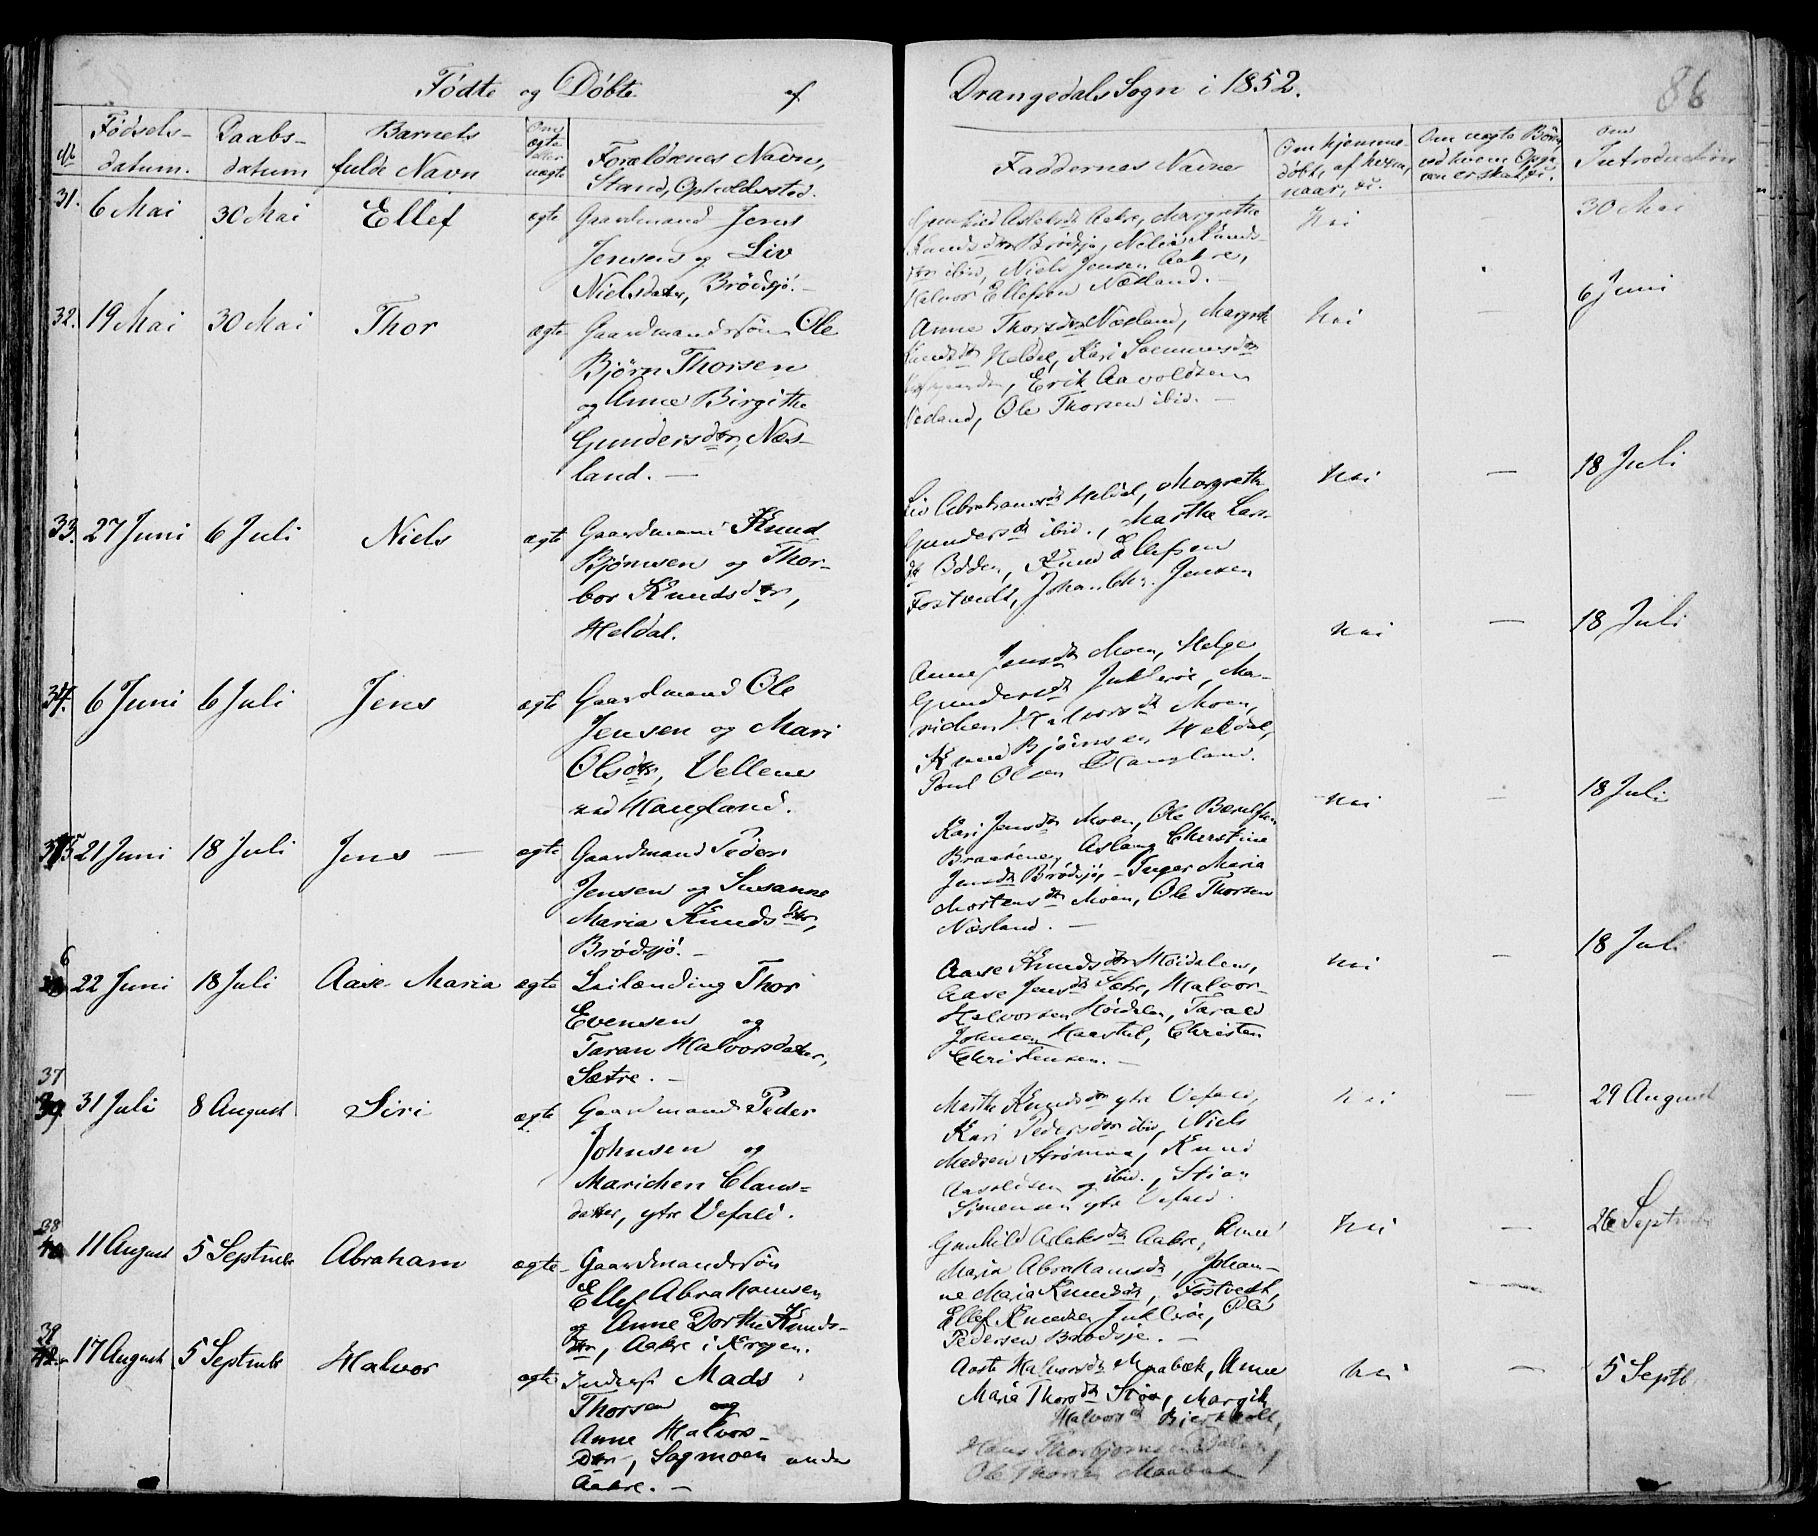 Fødte og Døbte af Drangedals Sogn i 1852. 86
№ Fødsels-
datum.
Daabs-
datum
Barnets
fulde Navn
Om
ægte
eller
uægte
Forældrenes Navn,
Stand, Opholdssted.
Faddernes Navne
Om hjemme-
døbt, af hvem,
naar, &c.
Om uægte Børn,
ved hvem
Om
Introduction
31. 6 Mai 30 Mai Ellef ægte Gaardmand Jens
Jensen og Liv
Nielsdater, Brødsjø. -
Gunhild Aslaksdtr Aakre, Margrethe
Knudsdtr Brødsjø, Nelia Knuds-
dtr ibid, Niels Jensen Aakre,
Halvor Ellefsen Næsland. -
Nei - 30 Mai
32. 19 Mai 30 Mai Thor ægte Gaardmandssøn Ole
Bjørn Thorsen
og Anne Birgithe
Gundersdtr, Næs-
land. -
Anne Thorsdtr Næsland, Margrete
Heldal, Kari
Erik Aavoldsen
Ole Thorsen ibid. -
Nei - 6 Juni
33. 27 Juni 6 Juli Niels ægte Gaardmand Knud
Bjørnsen og Thor-
bor Knudsdtr,
Heldal.
Liv Abrahamsdtr Heldal, Margrethe
Gundersdtr ibid., Marthe Lars-
dtr Bødden, Knud Ellefsen
Fostvedt, Johan Chr. Jensen
Nei - 18 Juli
34. 6 Juni 6 Juli Jens ægte Gaardmand Ole
Jensen og Mari
Olsdtr, Vellene
ved Haugland.
Anne Jensdtr Moen, Helge
Gundersdtr Juklerøe, Ma-
richen Halvorsdtr Moen,
Knud Bjørnsen Heldal,
Poul Olsen Haugland.
Nei - 18 Juli
35 21 Juni 18 Juli Jens - ægte Gaardmand Peder
Jensen og Susanne
Maria Knudsdtr,
Brødsjø. -
Kari Jensdtr Moen, Ole
Braatene, Aslaug Cherstine
Jensdtr Brødsjø - Inger Maria
Mortensdtr Moen, Ole Thorsen
Næsland. -
Nei - 18 Juli
36 22 Juni 18 Juli Aase Maria ægte Leilænding Thor
Evensen og
Taran Halvorsdater,
Sætre. -
Aase Knudsdtr Høidalen,
Aase Jensdtr Sætre, Halvor
Halvorsen Høidalen, Tarald
Johnsen Christen
Christensen. -
Nei - 18 Juli
37
39 31 Juli 8 August Siri ægte Gaardmand Peder
Johnsen og
Marichen Claus-
datter, ytre Vefald.
Marthe Knudsdtr ytre Vefald,
Kari Pedersdtr ibid, Niels
Madsen Strømaa, Knud
Aavoldsen og ibid., Stian
Simonsen ytre Vefald.
Nei - 29 August
38
40 11 August 5 Septmbr Abraham ægte Gaardmandssøn
Ellef Abrahamsen
og Anne Dorthe Knuds-
dtr, Aakre i Krogen.
Gunhild Aslaksdtr Aakre, Anne
Maria Abrahamsdtr, Johan-
ne Maria Knudsdtr, Fostvedt,
Ellef Knudsen Juklerøe, Ole
Pedersen Brødsjø. -
Nei - 26 Septmbr
39
42 17 August 5 Septmbr Halvor ægte Inderst Mads
Thorsen og
Anne Halvors-
dtr, Sagmoen under
Aakre. -
Aaste Halvorsdtr Maabæk, Anne
Maria Thorsdtr Støa, Margit
Halvorsdtr
Hans Thorbjørnsen
Ole Thorsen Maabæk
Nei - 5 Septb.